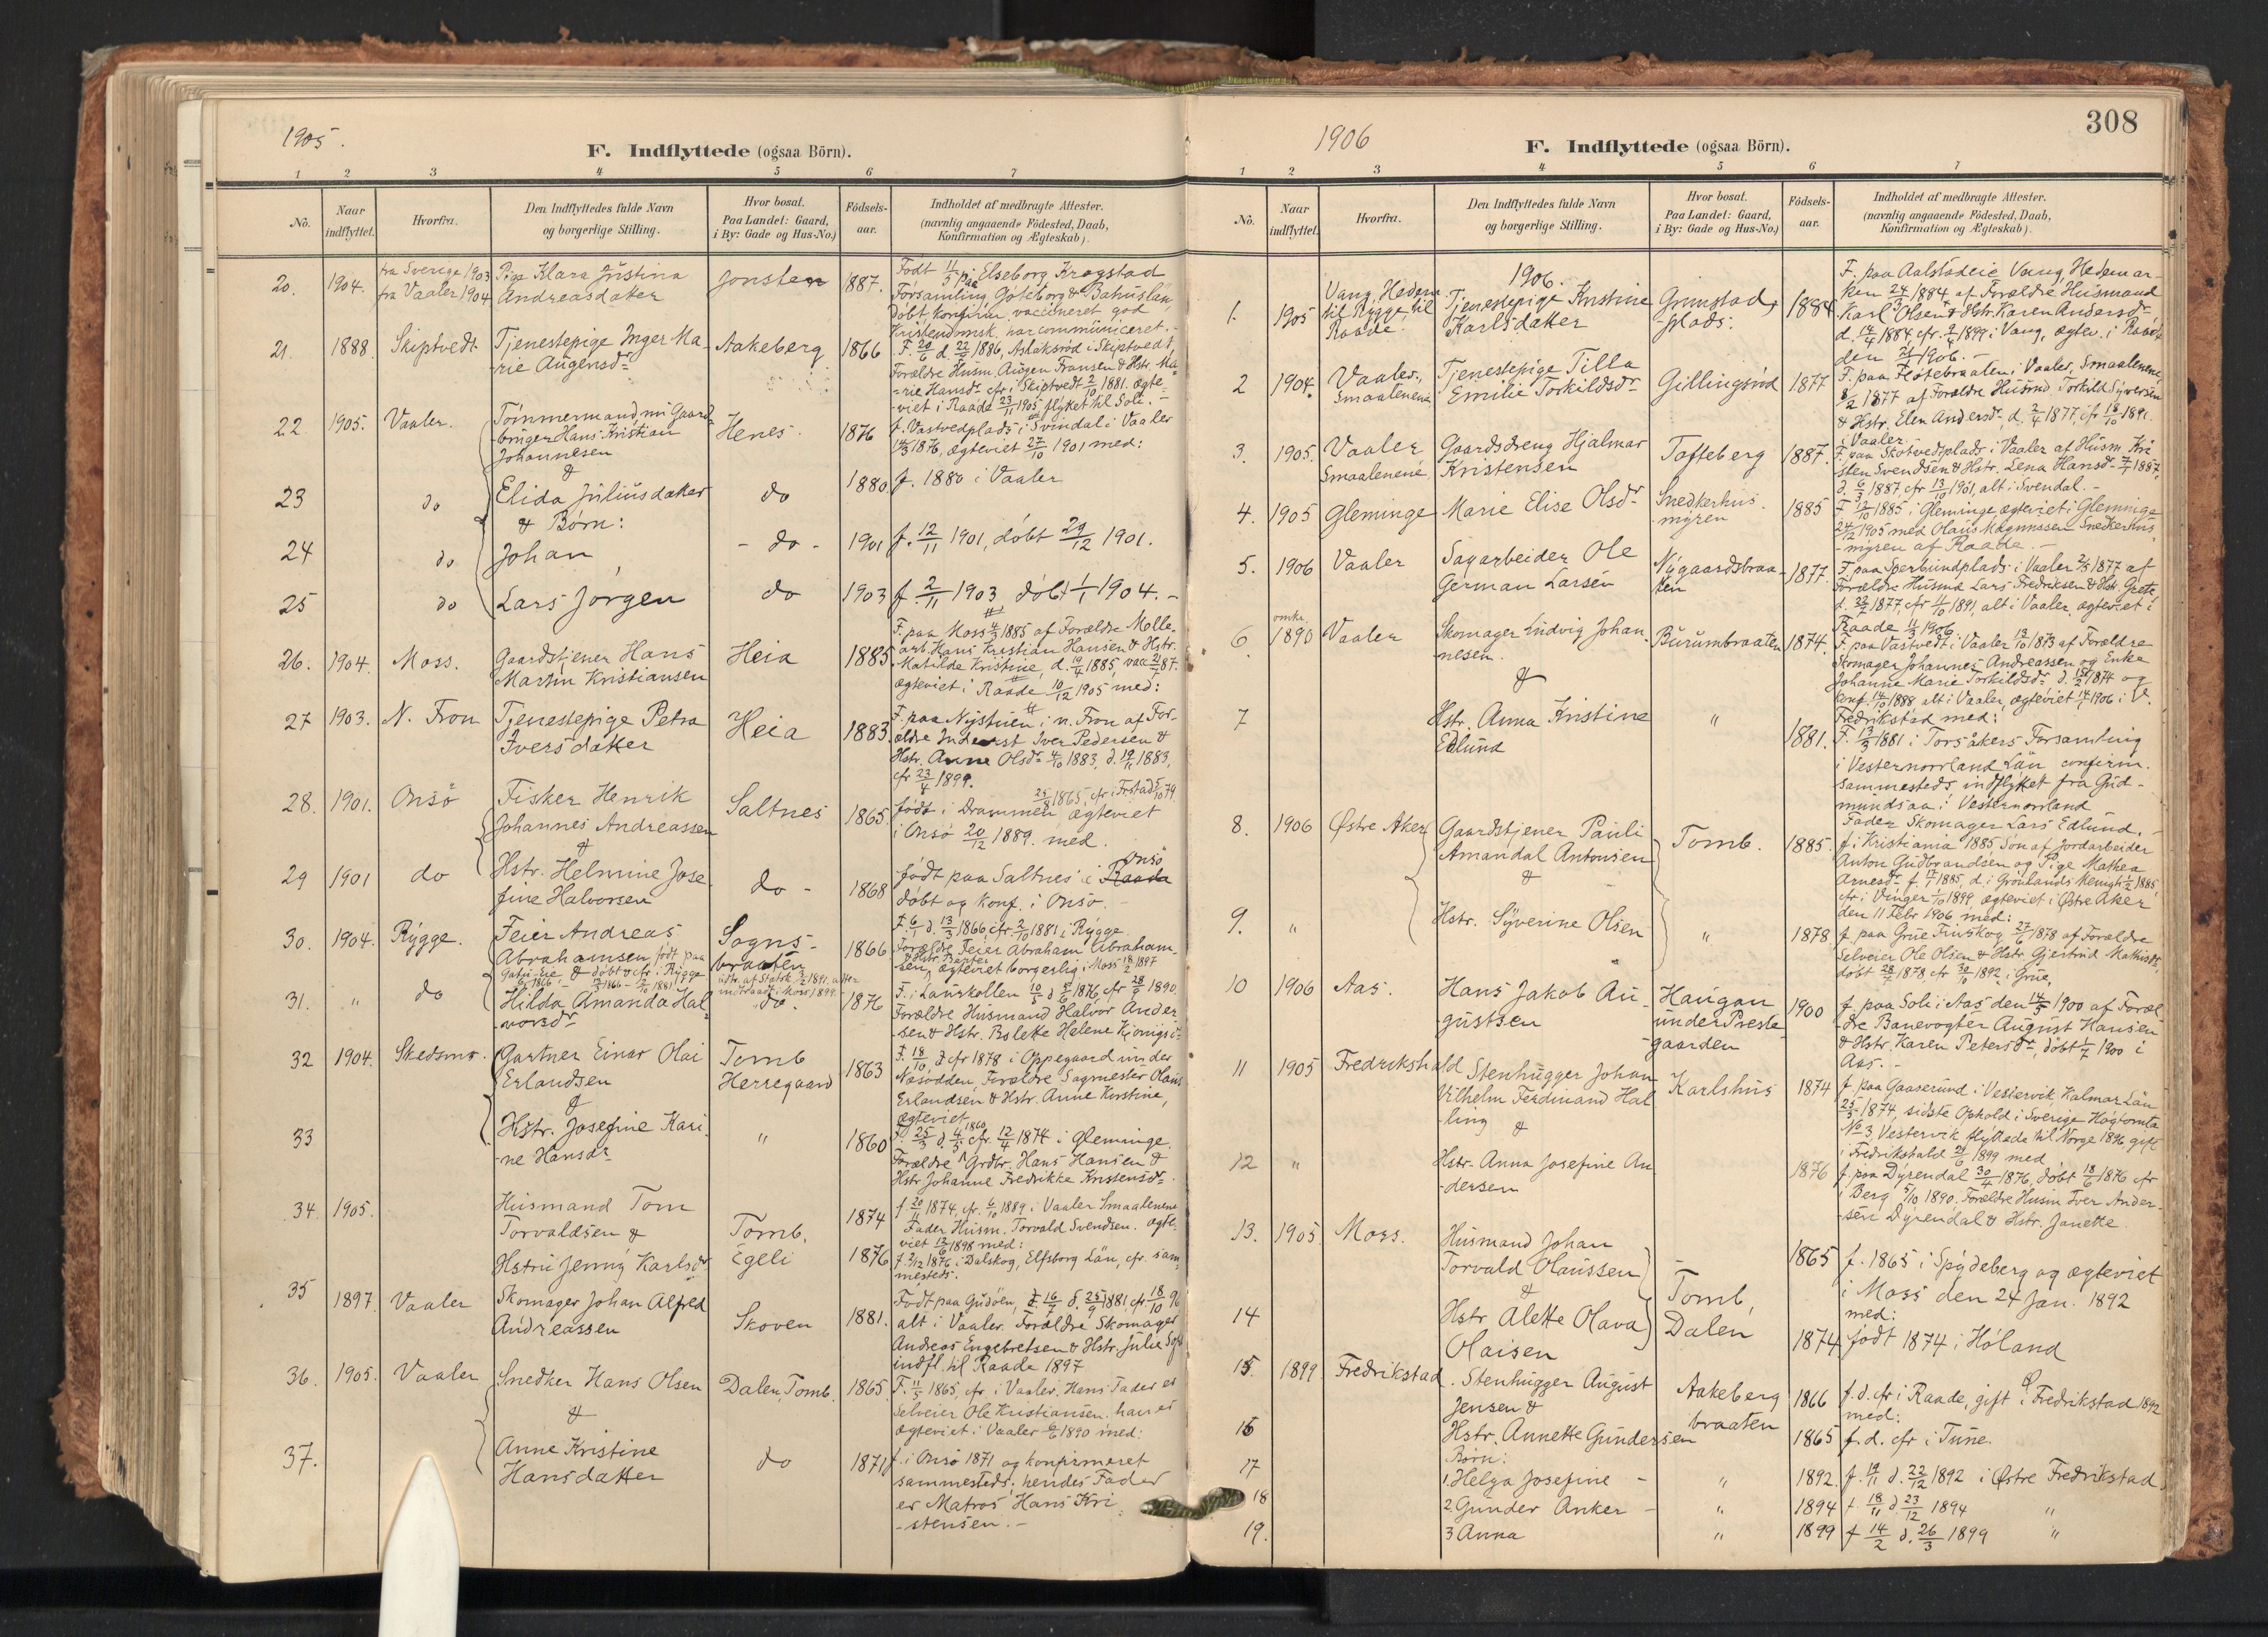 1905.
F. Indflyttede (ogsaa Börn).
1 2 3 4 5 6 7
No. Naar indflyttet. Hvorfra. Den Indflyttedes fulde Navn og borgerlige Stilling. Hvor bosat. Paa Landet: Gaard, i By: Gade og Hus-No.) Födsels-aar. Indholdet af medbragte Attester. (navnlig angaaende Födested, Daab, Konfirmation og Ægteskab).
20. 1904. fra Sverige 1903 Pige Klara Justina Jonsten 1887. Født 11/5 paa Elseborg Kragstad
fra Vaaler 1904 Andreasdatter Forsamling, Göteborg & Bahuslän,
døbt, konfirm vaccineret god
Kristendomsk. har communiceret. -
21. 1888. Skiptvedt Tjenestepige Inger Ma- Aakeberg 1866 F. 20/6 d. 1886, Aslaksrød i Skiptvedt,
rie Augensdr Forældre Husm. Augen Fransen & Hstr. Ma-
rie Hansdr cfr i Skiptvedt 2/10 1881. ægte-
viet i Raade 23/11 1905 flyttet til Soli. -
22. 1905. Vaaler. Tømmermand nu Gaard- Henes. 1876 f. Vastvedplads i Svindal i Vaaler
bruger Hans Kristian 1876, ægteviet 27/10 1901 med:
Johannesen
&
23 do Elida Juliusdatter do 1880 f. 1880 i Vaaler
& Børn:
24 do Johan, - do - 1901 f. 12/11 1901, døbt 29/12 1901.
25 do Lars Jørgen do 1903 f. 2/11 1903 døbt 1/1 1904. -
26. 1904. Moss. Gaardstjener Hans Heia 1885 F. paa Moss 4/3 1885 af Forældre Mølle-
Martin Kristiansen arb. Hans Kristian Hansen & Hstr.
Matilde Kristine, d. 19/4 1885, vac 21/7 87.
ægteviet i Raade 10/12 1905 med:
27 1903. N. Fron Tjenestepige Petra Heia 1883. F. paa Nystuen i n. Fron af For-
Iversdatter ældre Inderst Iver Pedersen &
Hstr. Anne Olsdr 4/10 1883, d. 19/11 1883,
cfr 23/4 1899.
28. 1901. Onsø Fisker Henrik Saltnes 1865. født i Drammen 25/8 1865, cfr i Frstad 5/10 79. ægteviet
Johannes Andreassen i Onsø 20/12 1889. med.
&
29 1901 do Hstr. Helmine Jose- do - 1868 født paa Saltnes i Raade Onsø
fine Halvorsen døbt og konf. i Onsø. -
30. 1904. Rygge. Feier Andreas Sogns- 1866 F. 6/1 d. 13/3 1866, cfr. 2/10 1881 i Rygge.
Abrahamsen, født paa braaten Forældre Feier Abraham Abraham-
& døbt & cfr. i Rygge udtr. af Statsk. 3/2 1891. atter sen & Hstr. Bente, ægteviet borgerlig i Moss 18/2 1897
indtraadt i Moss 1899
31. " do Hilda Amanda Hal- "do. 1876 F. i Laurkollen 10/5 d 5/6 1876, cfr 28/9 1890
vorsdr Forældre Husmand Halvor Ander-
sen & Hstr. Bolette Helene
32 1904. Skedsmo. Gartner Einar Olai Tomb 1863 F. 18/10, d cfr 1878 i Oppegaard under
Erlandsen Herregaard Næsodden, Forældre Sagmester Olaus
& Erlandsen & Hstr. Anne Kirstine,
ægteviet
33 Hstr. Josefine Kari- " 1860 F. 25/3 d. 4/5 1860 cfr. 12/4 1874 i Gleminge.
ne Hansdr Forældre Grdbr. Hans Hansen &
Hstr Johanne Fredrikke Kristensdr.
34. 1905. Husmand Tom 1874 f. 20/11 1874, cfr. 6/10 1889 i Vaaler Smaalenene
Torvaldsen & Tomb, Fader Husm. Torvald Svendsen. ægte-
viet 13/6 1898 med:
Hstru Jenny Karlsdr Egeli 1876 f. 2/12 1876 i Dalskog, Elfsborg Län, cfr. sam-
mesteds.
35 1897. Vaaler Skomager Johan Alfred Skoven 1881. Født paa Gudøen, F. 16/7 d. 25/9 1881, cfr. 18/10 96
Andreassen alt i Vaaler. Forældre Skomager
Andreas Engebretsen & Hstr. Julie
indfl. til Raade 1897
36. 1905. Vaaler Snedker Hans Olsen Dalen, Tomb. 1865 F. 11/5 1865, cfr. i Vaaler. Hans Fader er
& Selveier Ole Kristiansen. han er
ægteviet i Vaaler 1890 med:
37. Anne Kristine do 1871 f. i Onsø 1871 og konfirmeret
Hansdatter sammesteds; hendes Fader
er Matros Hans Kri-
stensen. -
1906
308
F. Indflyttede (ogsaa Börn).
1 2 3 4 5 6 7
No. Naar indflyttet. Hvorfra. Den Indflyttedes fulde Navn og borgerlige Stilling. Hvor bosat. Paa Landet: Gaard, i By: Gade og Hus-No.) Födsels-aar. Indholdet af medbragte Attester. (navnlig angaaende Födested, Daab, Konfirmation og Ægteskab).
1906.
1. 1905 Vang, Hedem. Tjenestepige Kristine Grimstad- 1884 F. paa Aalstadeie Vang, Hedemar-
til Rygge, til Karlsdatter plads. ken 24/3 1884 af Forældre Husmand
Raade. Karl Olsen & Hstr. Karen Andersdr
d. 14/4 1884, cfr. 1899 i Vang, ægtev. i Raade
den 1906. -
2 1904. Vaaler, Tjenestepige Tilla Gillingsrød 1877 F. paa Fløtebraaten i Vaaler, Smaalenene,
Smaalenene Emilie Torkildsdr 8/2 1877 af Forældre Husmd Torkild Syversen
& Hstr. Elen Andersdr. d. 2/4 1877, cfr 18/10 1891.
i Vaaler.
3. 1905. Vaaler Gaardsdreng Hjalmar Tofteberg 1887. F. paa Skotvedtplads i Vaaler af Husm. Kri-
Smaalenene Kristensen sten Svendsen & Hstr. Lena Hansdr 1887,
d. 6/3 1887, cfr 13/10 1901, alt i Svendal. -
4. 1905 Gleminge Marie Elise Olsdr Snedkerhus- 1885 F. 12/10 1885 i Gleminge, ægteviet i Gleminge
myren 24/12 1905 med Olaus Magnussen Snedkerhus-
myren af Raade. -
5. 1906 Vaaler Sagarbeider Ole Nygaardsbraa- 1877. F. paa Sperbundplads i Vaaler 2/3 1877 af
German Larsen ten Forældre Husmd Lars Fredriksen & Hstr. Grete,
d. 1877, cfr 11/10 1891, alt i Vaaler, ægteviet i
Raade 11/3 1906.
6. omkr. 1890 Vaaler Skomager Ludvig Johan- Burumbraaten 1874. F. paa Vastvedt i Vaaler 19/10 1873 af Forældre
nesen. Skomager Johannes Andreassen og Enke
& Johanne Marie Torkildsdr d. 15/2 1874 og
konf. 14/10 1888, alt i Vaaler, ægteviet 14/1 1906 i V.
Fredrikstad med:
7 Hstr. Anna Kristine " 1881. F. 13/3 1881 i Torsåkers Forsamling
Edlund i Vesternorrland Län confirm.
sammesteds, indflyttet fra Gud-
mundsaa i Vesternorrland
Fader Skomager Lars Edlund. -
8. 1906 Østre Aker Gaardstjener Pauli Tomb. 1885. f. i Kristiania 1885 Søn af Jordarbeider
Amandal Antonsen Anton Gudbrandsen og Pige Mathea
& Arnesdr f. 17/1 1885, d. i Grønlands Menigh 1/2 1885,
cfr. i Vinger 1/10 1899, ægteviet i Østre Aker
den 11 Febr 1906 med:
9. " Hstr. Syverine Olsen " 1878 f. paa Grue Finskog 27/6 1878 af Forældre
Selveier Ole Olsen & Hstr. Gjertrud Mathisdr,
døbt 28/7 1878 cfr 30/10 1892 i Grue,
10 1906 Aas. Hans Jakob Au- Haugan 1900 f. paa Soli i Aas den 14/5 1900 af Foræl-
gustsen under Preste- dre Banevogter August Hansen
gaarden & Hstr. Karen Petersdr, døbt 1/7 1900 i
Aas. -
11 1905 Fredrikshald Stenhugger Johan Karlshus 1874 f. paa Gaaserund i Vestervik, Kalmar Län
Vilhelm Ferdinand Hal- 25/5 1874, sidste Ophold i Sverige Högtomta
ling & No 3 Vestervik flyttede til Norge 1896, gift
i Fredrikshald 21/6 1899 med
12 " Hstr. Anna Josefine An- 1876 f. paa Dyrendal 30/4 1876, døbt 18/6 1876 cfr
dersen i Berg 5/10 1890. Forældre Husm Iver Ander-
sen Dyrendal & Hstr. Janette.
13. 1905 Moss. Husmand Johan Tomb, 1865 f. 1865 i Spydeberg og ægteviet
Torvald Olaussen i Moss den 24 Jan. 1892
& med:
14 Hstr Alette Olava Dalen 1874 født 1874 i Høland
Olaisen
15. 1899 Fredrikstad. Stenhugger August Aakeberg 1866 f. d. cfr i Raade, gift i Ø. Fredrikstad 1892
Jensen & braaten med:
16 Hstr. Annette Gundersen 1865 f. d. cfr i Tune.
Børn:
17 1. Helga Josefine - " 1892. f. 19/11 d. 22/12 1892 i Østre Fredrikstad
18 2 Gunder Anker - " 1894 f 18/11 d 23/12 1894 "
19. 3 Anna " 1899 f 14/2 d. 26/3 1899 "